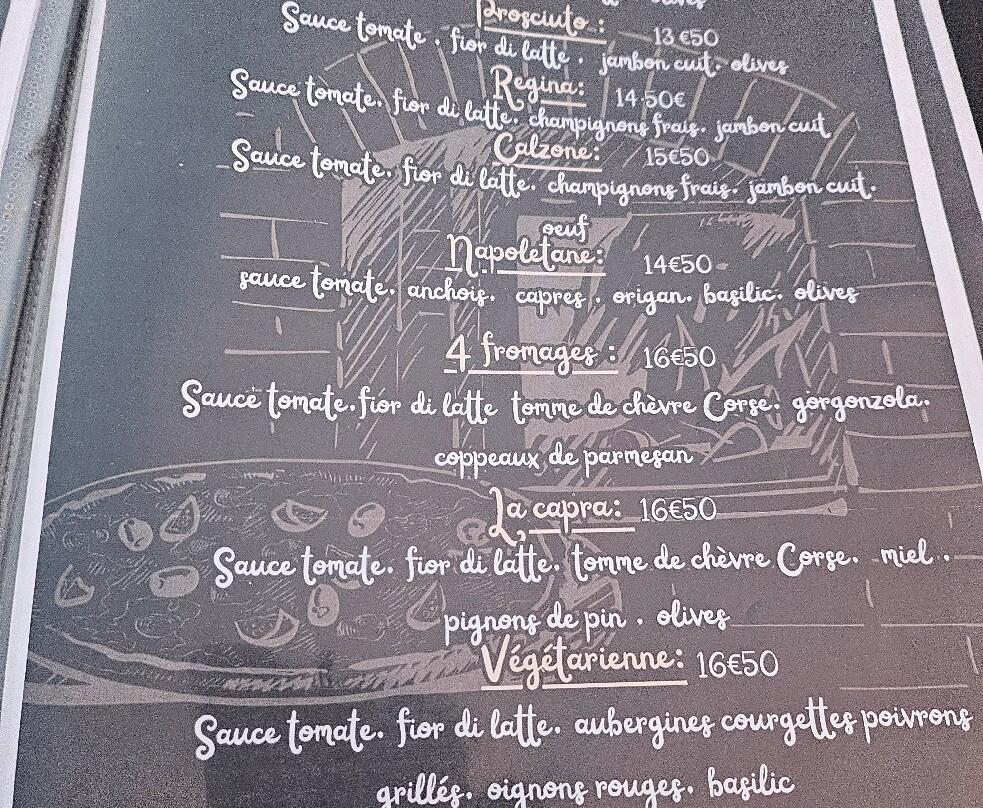 Prosciuto : 13€50
Sauce tomate . fior di latte . jambon cuit. olives
Regina: 14.50€
Sauce tomate. fior di latte. champignons frais. jambon cuit
Calzone: 15€50
Sauce tomate. fior di latte. champignons frais. jambon cuit.
oeuf
Napoletane: 14€50
sauce tomate. anchois. capres . origan. basilic. olives
4 fromages : 16€50
Sauce tomate.fior di latte tomme de chèvre Corse. gorgonzola.
coppeaux de parmesan
La capra: 16€50
Sauce tomate. fior di latte. tomme de chèvre Corse. miel .
pignons de pin . olives
Végétarienne: 16€50
Sauce tomate. fior di latte. aubergines courgettes poivrons
grillés. oignons rouges. basilic